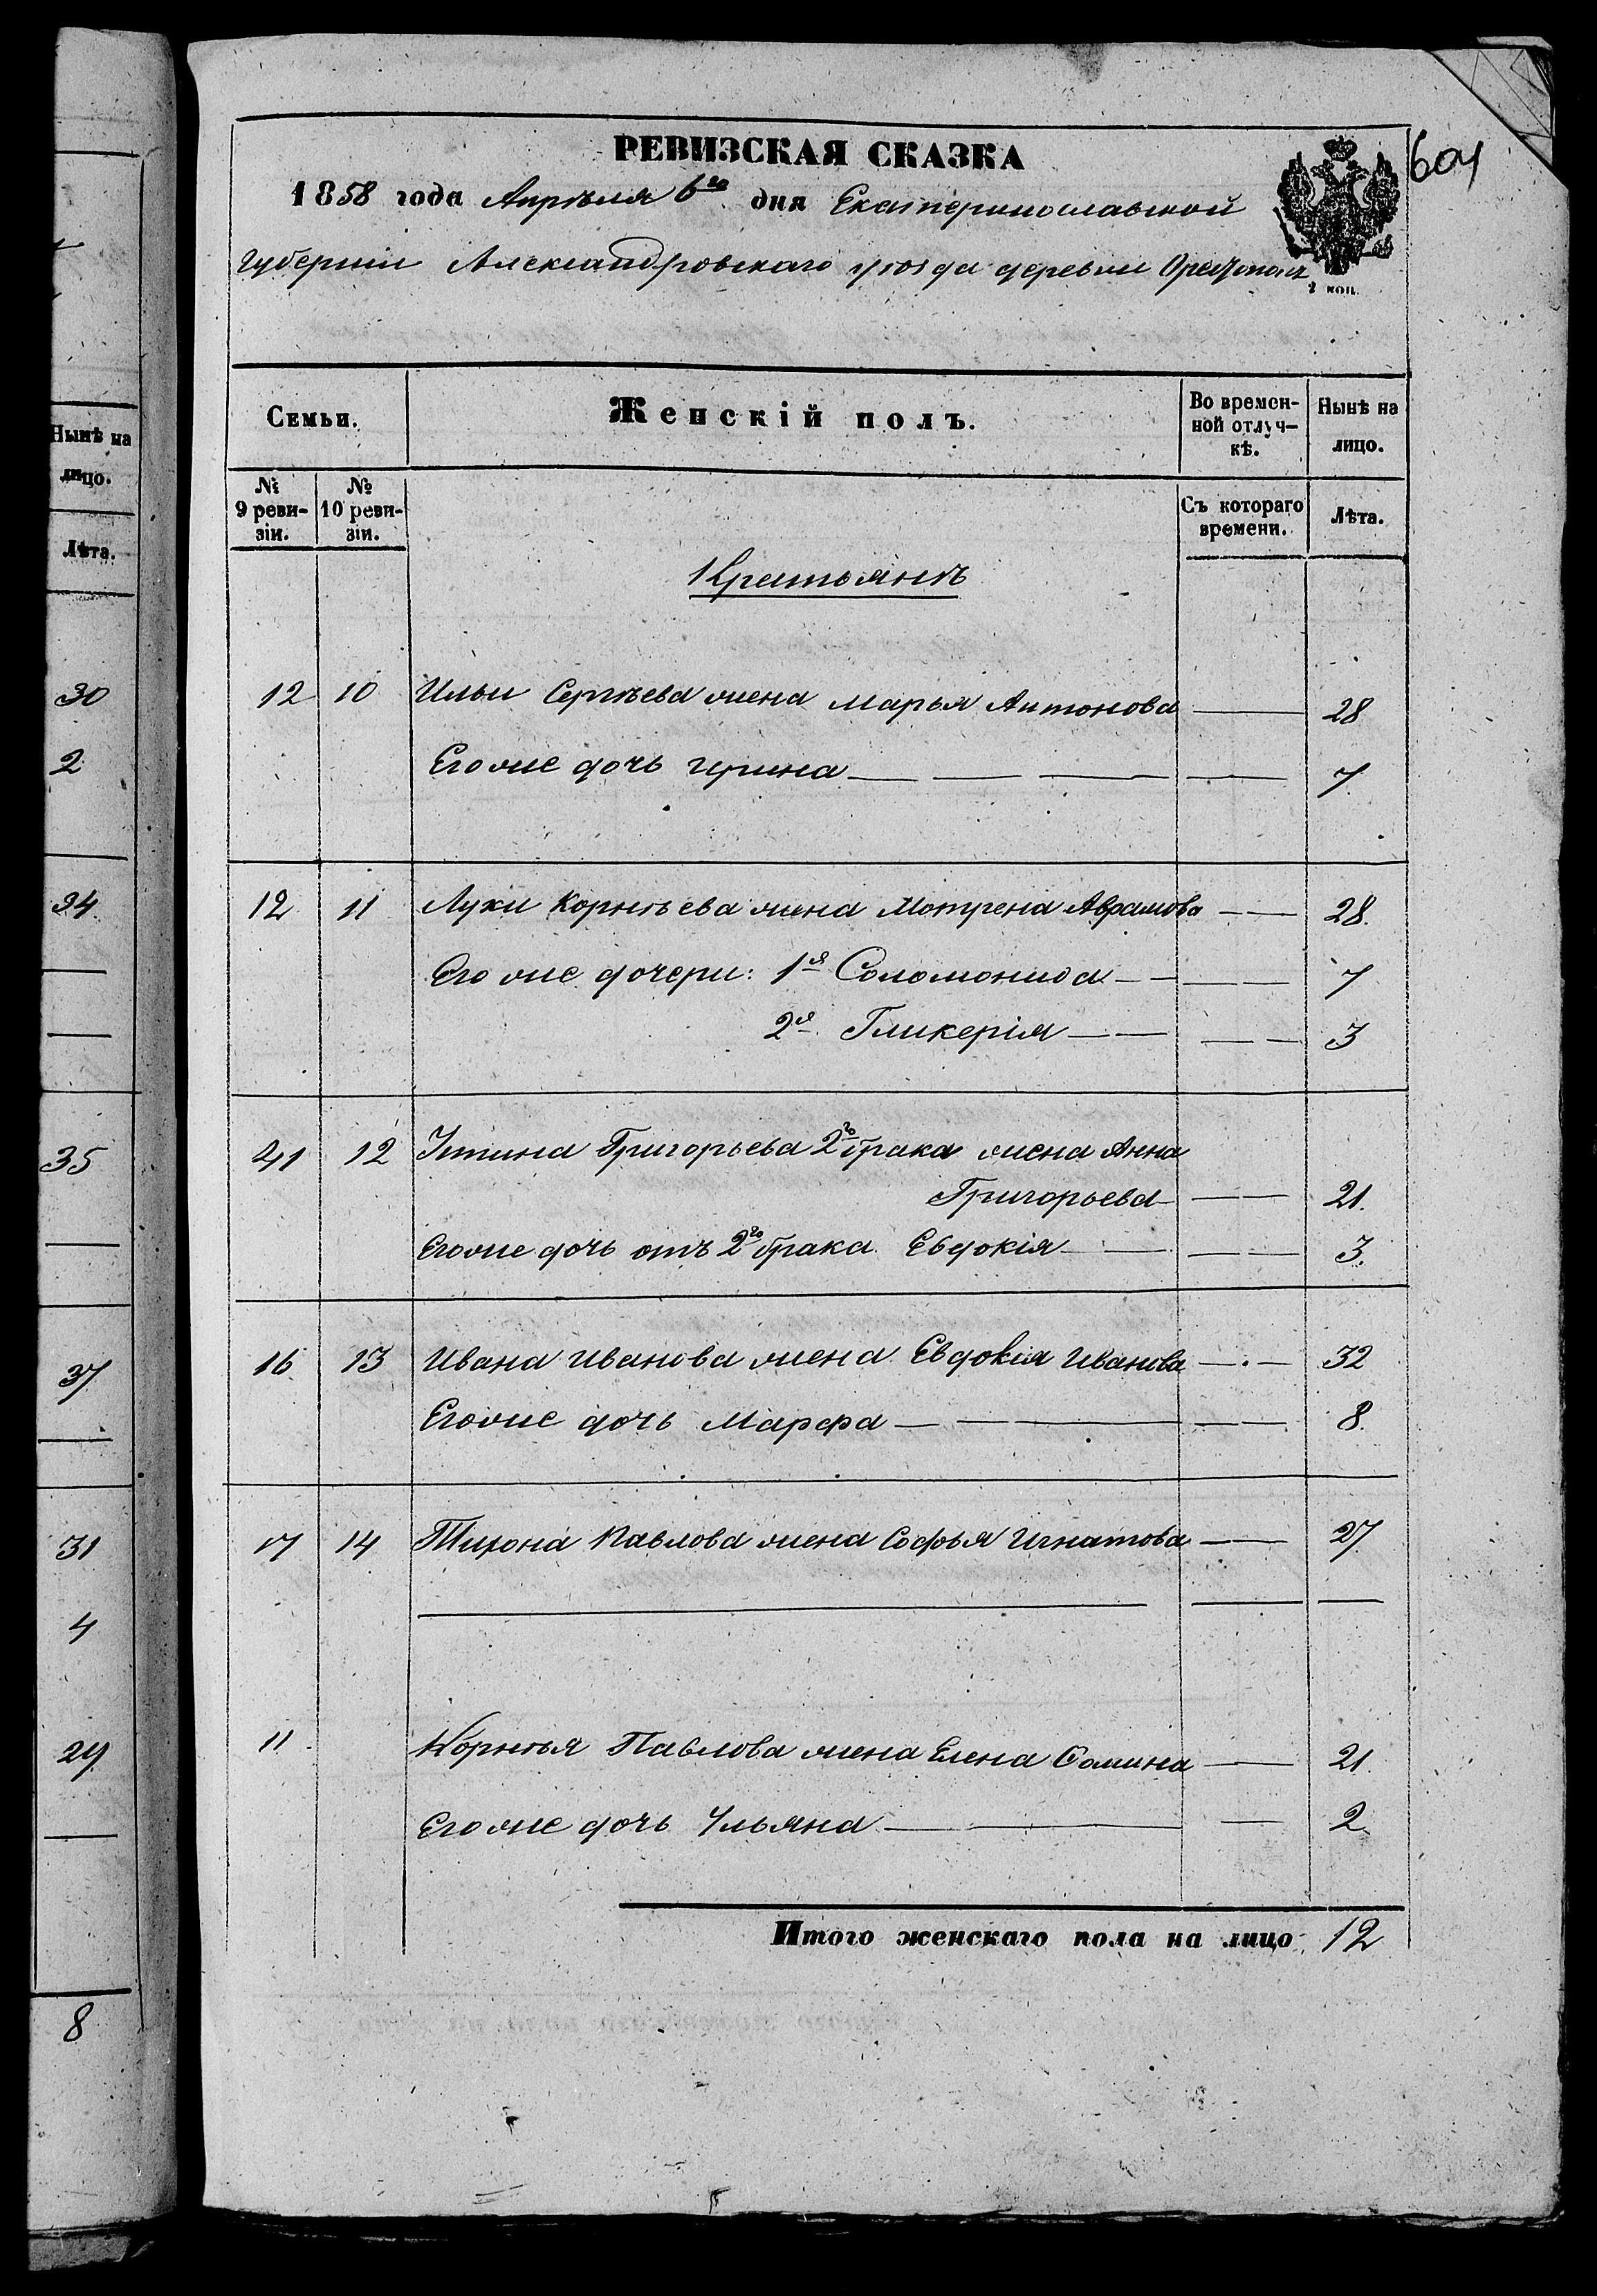 Нынѣ на
лицо.
Лѣта.
30
2
34
35
37
31
4
29
8
604
РЕВИЗСКАЯ СКАЗКА
1858 года Апрѣля 6го дня Екатеринославской
Губерніи Александровскаго уѣзда деревни
2 коп.
Семьи.
Женскій полъ.
Во времен-
ной отлуч-
кѣ.
Нынѣ на
лицо.
№
9 реви-
зіи.
№
10 реви-
зіи.
Съ котораго
времени.
Лѣта.
Крестьянъ
12 10 Ильи Сергѣева жена Марья Антонова 28
Его же дочь Ирина 7
12 11 Луки Корнѣева жена Мотрена Аврамова 28.
Его же дочери: 1я Соломонида 7
2я Гликерія 3
41 12 Устина Григорьева 2го брака жена Анна
Григорьева 21.
Его же дочь отъ 2го брака Евдокія 3.
16 13 Ивана Иванова жена Евдокія Иванова 32
Его же дочь Марфа 8.
17 14 Тихона Павлова жена Софья Игнатова 27
11 Корнѣя Павлова жена Елена Фомина 21.
Его же дочь Ульяна 2
Итого женскаго пола на лицо 12